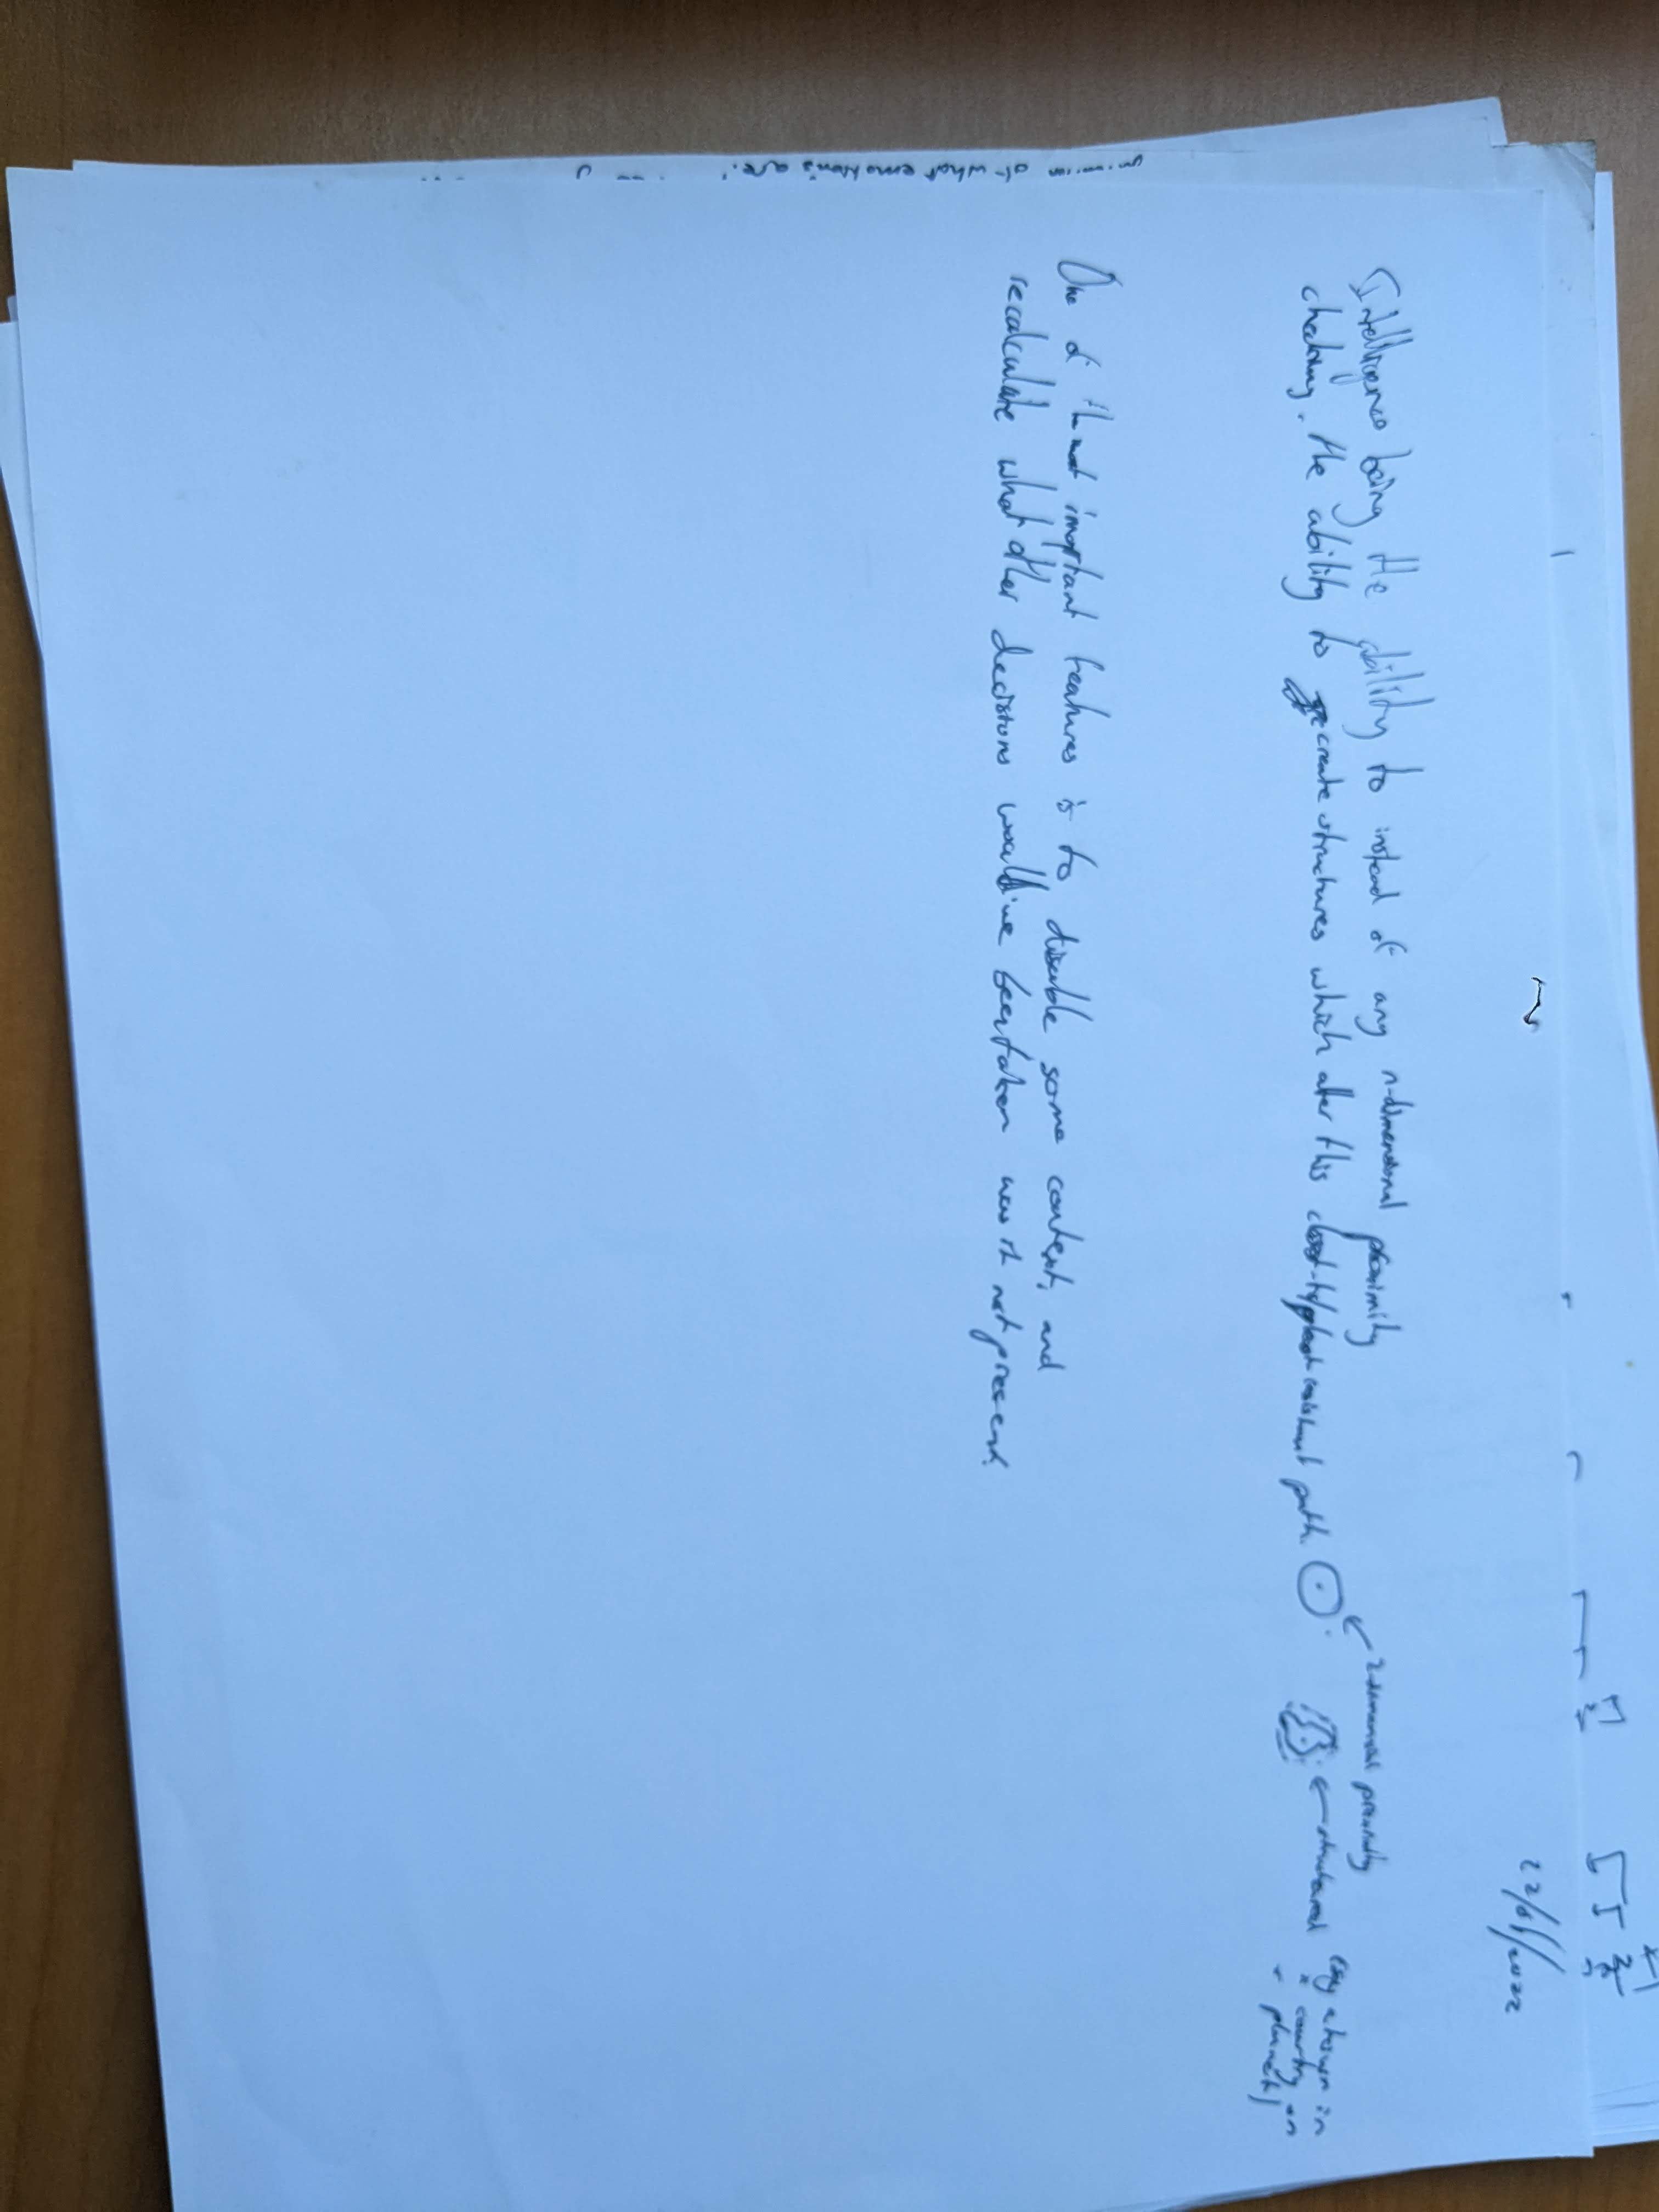 22/01/2022
Intelligence being the ability to instead of any n-dimensional proximity
checking, the ability to create structures which alter this path.
2-dimensional proximity
structural (eg a town in
a country, on
a planet)
One of the most important features is to disable some content, and
recalculate what other decisions would've been taken was it not present.
of what emotions are.